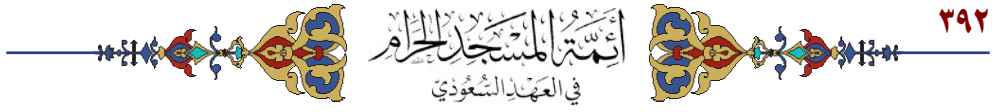 ٣٩٢
أئمة المسجد الحرام
في العهد السعودي